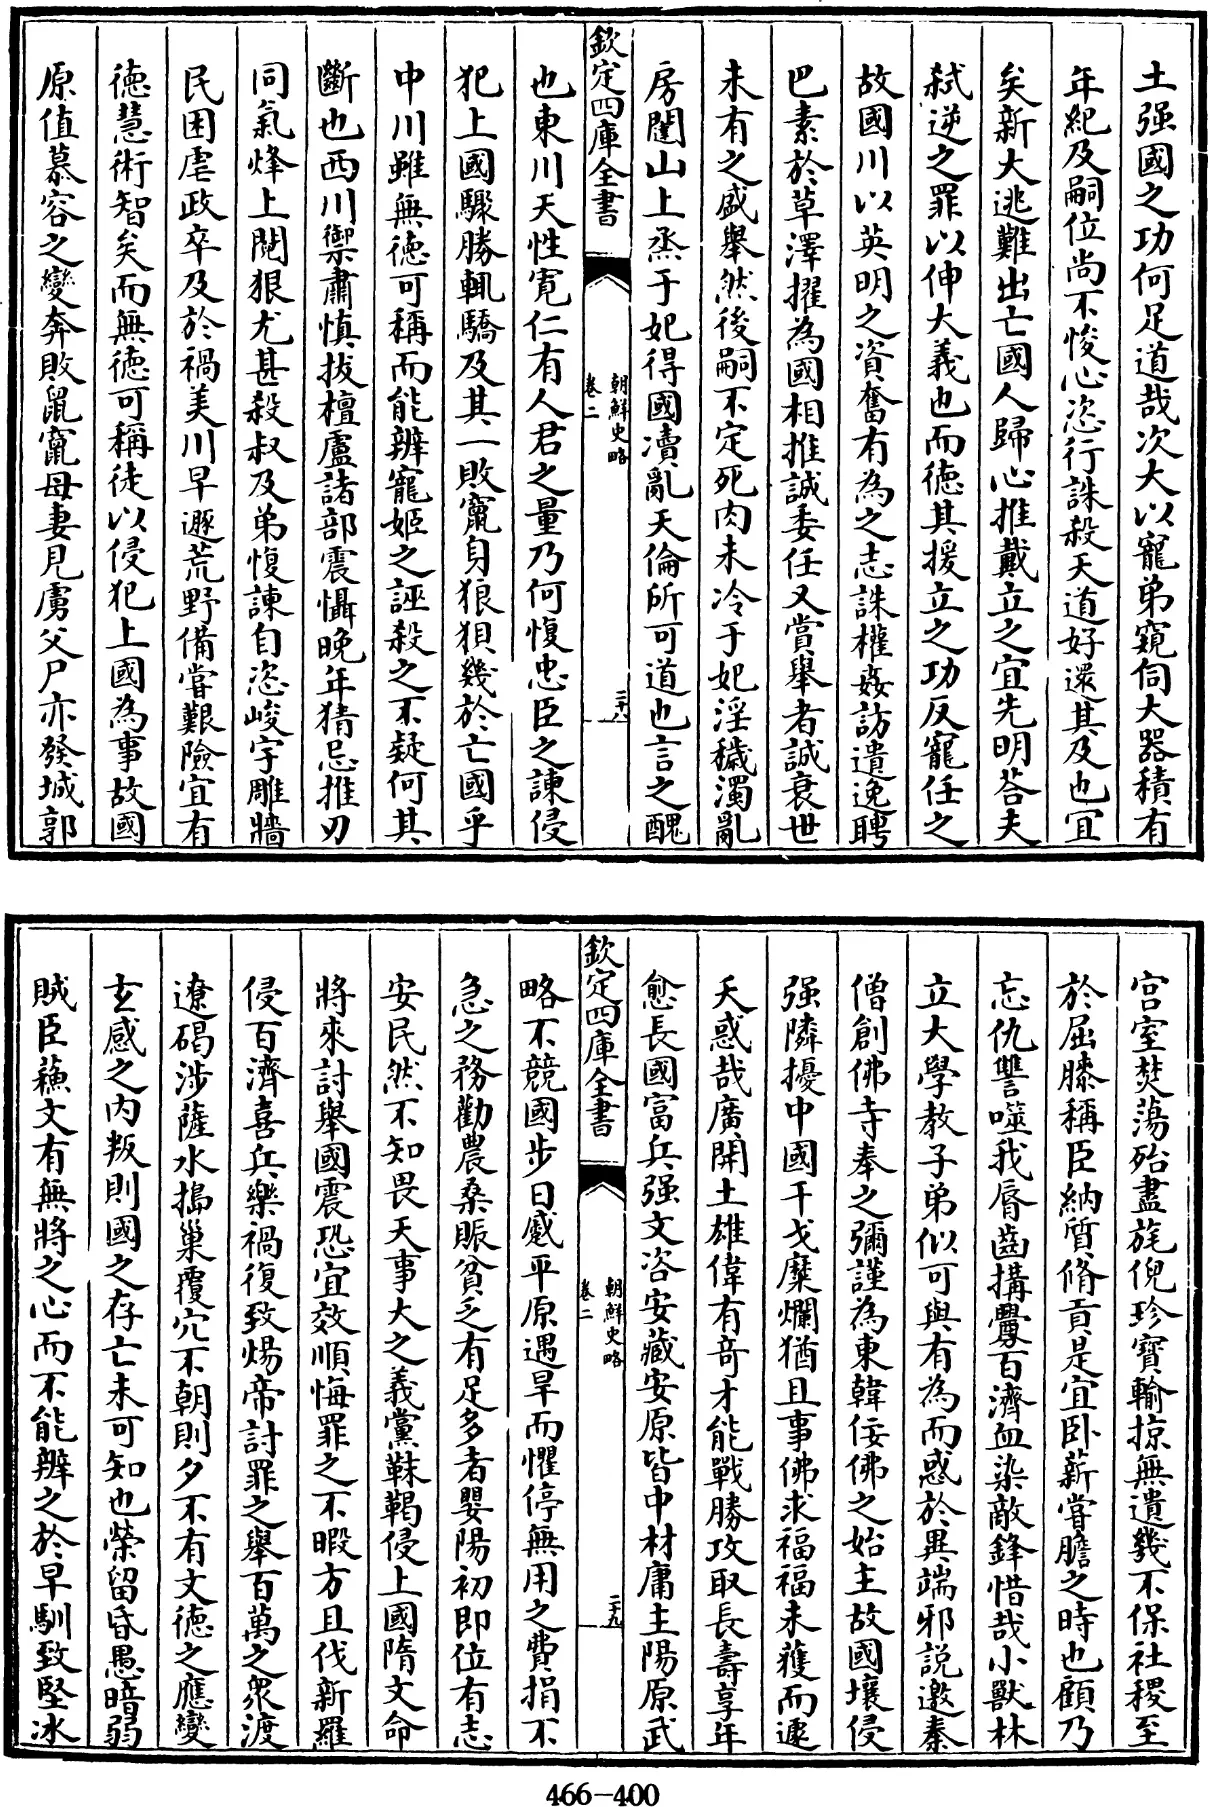 土强國之功何足道哉次大以寵弟窺伺大器積有
年紀及嗣位尚不悛心恣行誅殺天道好還其及也宜
矣新大逃難出亡國人歸心推戴立之宜先明答夫
弑逆之罪以伸大義也而徳其援立之功反寵任之
故國川以英明之資奮有為之志誅權姦訪遺逸聘
巴素於草澤擢為國相推誠委任又賞舉者誠衰世
未有之盛舉然後嗣不定死肉未冷于妃淫穢濁亂
房闥山上烝于妃得國凟亂天倫所可道也言之醜
欽定四庫全書
朝鮮史略
卷二
二十八
也東川天性寛仁有人君之量乃何愎忠臣之諫侵
犯上國驟勝輒驕及其一敗竄身狼狽幾於亡國乎
中川雖無徳可稱而能辨寵姬之誣殺之不疑何其
斷也西川禦肅慎拔檀盧諸部震懾晚年猜忌推刃
同氣烽上䦧狠尤甚殺叔及弟愎諫自恣峻宇雕牆
民困虐政卒及於禍美川早遯荒野備嘗艱險宜有
徳慧術智矣而無徳可稱徒以侵犯上國為事故國
原值慕容之變奔敗鼠竄母妻見虜父尸亦發城郭
宫室焚蕩殆盡旄倪珍寳輸掠無遺幾不保社稷至
於屈膝稱臣納質脩貢是宜卧薪嘗膽之時也顧乃
忘仇讐噬我唇齒搆釁百濟血染敵鋒惜哉小獸林
立大學教子弟似可與有為而惑於異端邪説邀秦
僧創佛寺奉之彌謹為東韓佞佛之始主故國壤侵
强隣擾中國干戈糜爛猶且事佛求福福未獲而遽
夭惑哉廣開土雄偉有竒才能戰勝攻取長壽享年
愈長國富兵强文咨安藏安原皆中材庸主陽原武
欽定四庫全書
朝鮮史略
卷二
二十九
略不競國步日蹙平原遇旱而懼停無用之費捐不
急之務勸農桑賑貧乏有足多者嬰陽初即位有志
安民然不知畏天事大之義黨靺鞨侵上國隋文命
將來討舉國震恐宜效順悔罪之不暇方且伐新羅
侵百濟喜兵樂禍復致煬帝討罪之舉百萬之衆渡
遼碣涉薩水搗巢覆穴不朝則夕不有文徳之應變
玄感之内叛則國之存亡未可知也榮留昏愚暗弱
賊臣蘓文有無將之心而不能辨之於早馴致堅冰
466-400